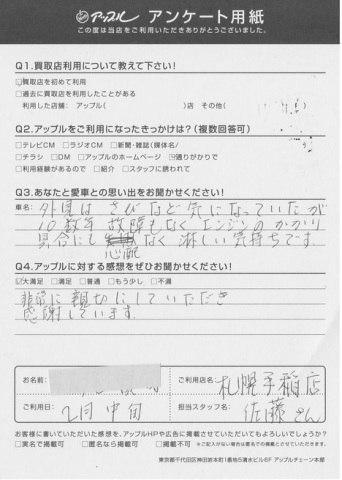 アップル アンケート用紙
この度は当店をご利用いただきありがとうございました。
Q1.買取店利用について教えて下さい!
☑買取店を初めて利用
□過去に買取店を利用したことがある
利用した店舗: アップル( )店 その他( )
Q2.アップルをご利用になったきっかけは?(複数回答可)
□テレビCM □ラジオCM □新聞・雑誌(媒体名/
□チラシ □DM □アップルのホームページ ☑通りがかりで
□利用経験があるので □紹介 □スタッフに誘われて
Q3.あなたと愛車との思い出をお聞かせください!
車名:
外見は さびなど気になっていたが
10数年 故障もなくエンジンのかかり
具合にし なく 淋しい気持ちです。
心配
Q4.アップルに対する感想をぜひお聞かせください!
☑大満足 □満足 □普通 □もう少し □不満
非常に親切にしていただき
感謝しています。
お名前:
ご利用店名: 札幌手稲店
ご利用日: 2月中旬
担当スタッフ名: 佐藤さん
お客様に書いていただいた感想を、アップルHPや広告に掲載させていただいてもよろしいでしょうか?
□実名で掲載可 □匿名なら掲載可 □掲載不可 ※ご記入がない場合は匿名での掲載とさせていただきます。
東京都千代田区神田鈴本町1番地5清水ビル6F アップルチェーン本部